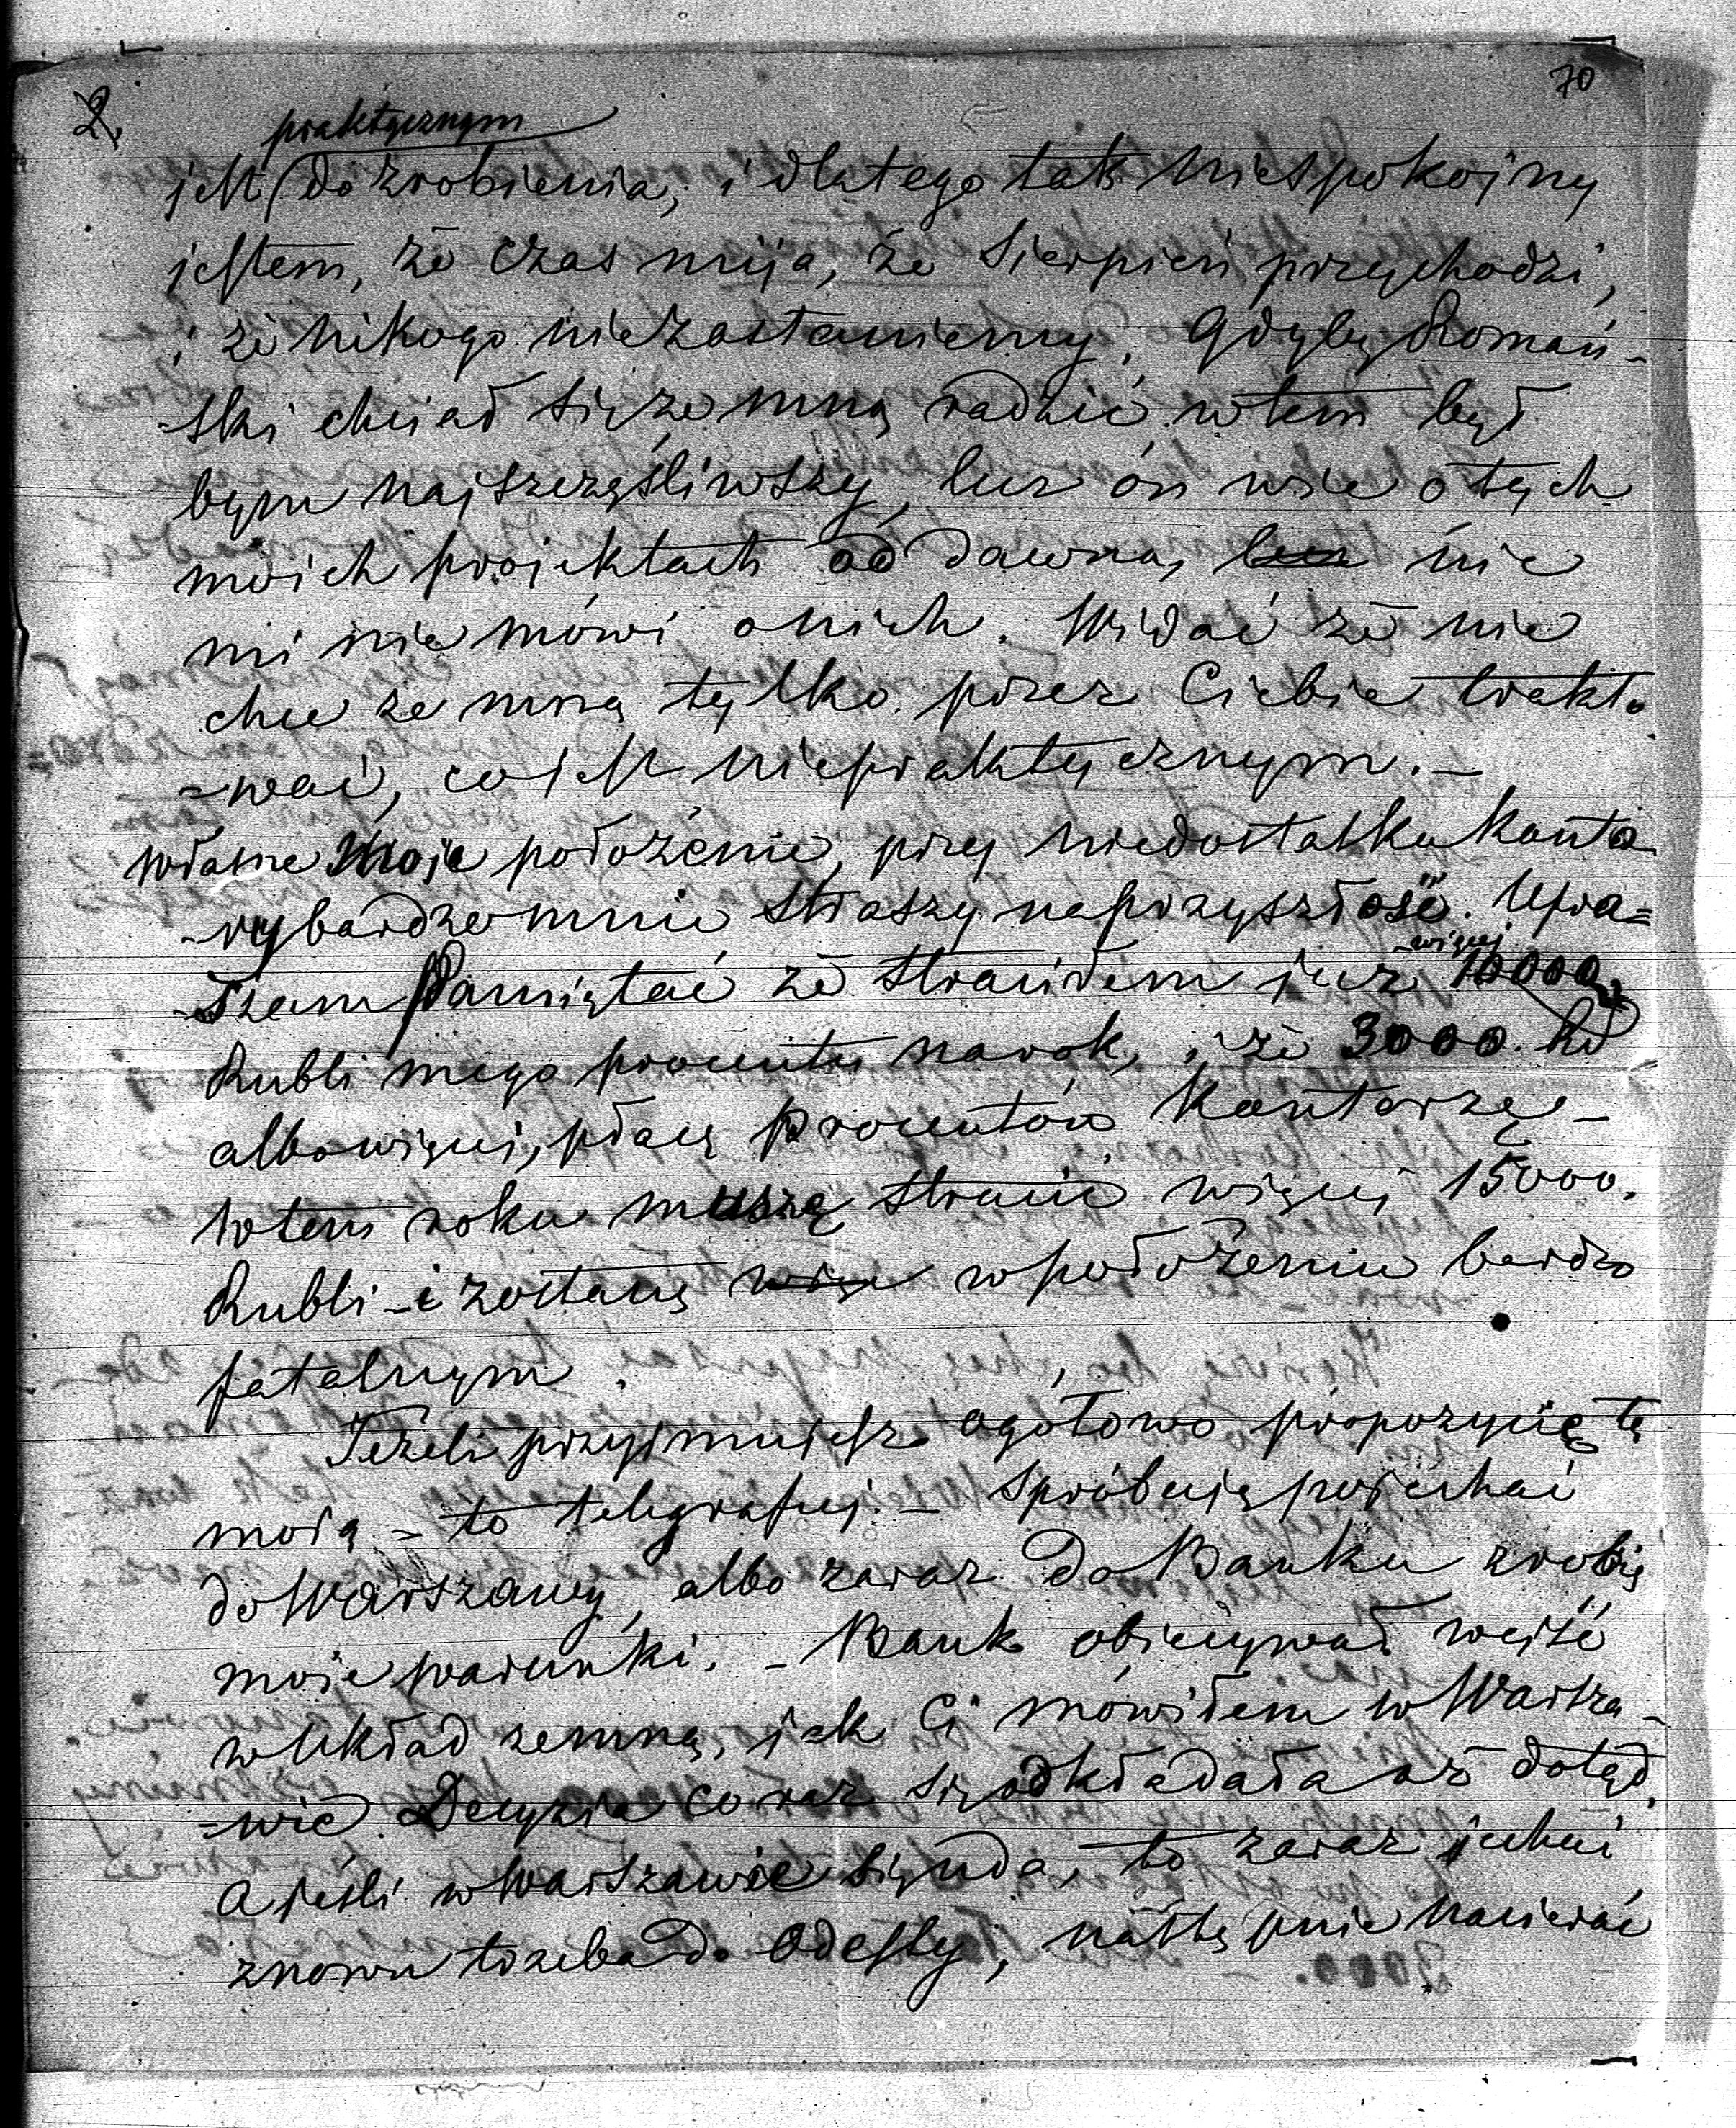 70
2.
praktycznym
jest do zrobienia, i dlatego tak niespokojny
jestem, że czas mija, że Sierpień przychodzi,
i że nikogo niezastaniemy. Gdyby Romań-
-ski chciał się ze mną radzić w tem był
bym najszczęśliwszy, lecz on wie o tych
moich projektach od dawna, lecz nic
mi nie mówi o nich. Widać że nie
chce ze mną tylko przez Ciebie trakto
=wać, co jest niepraktycznym. –
własne Moje położenie, przy niedostatku kanto
-ry bardzo mnie straszy na przyszłość. Upra=
-szam Pamiętać że straciłem już
więcej
10000
Rubli mego procentu na rok, i że 3000. Rs
albo więcej, płacę Procentów Kantorze –
w tem roku muszę stracić więcej 15000.
Rubli – i zostanę w położeniu bardzo
fatalnym.
Jeżeli przyjmujesz ogółowo propozycię tę
moją – to telegrafuj. – Spróbuję pojechać
do Warszawy, albo zaraz do Banku zrobię
moje warunki. – Bank obiecywał wejść
w Układ zemną, jak Ci mówiłem w Warsza-
=wie. Decyzia co raz się odkładała aż dotąd.
a jeśli w Warszawie się uda, to zaraz jechać
znowu trzeba do Odessy, następnie nacierać